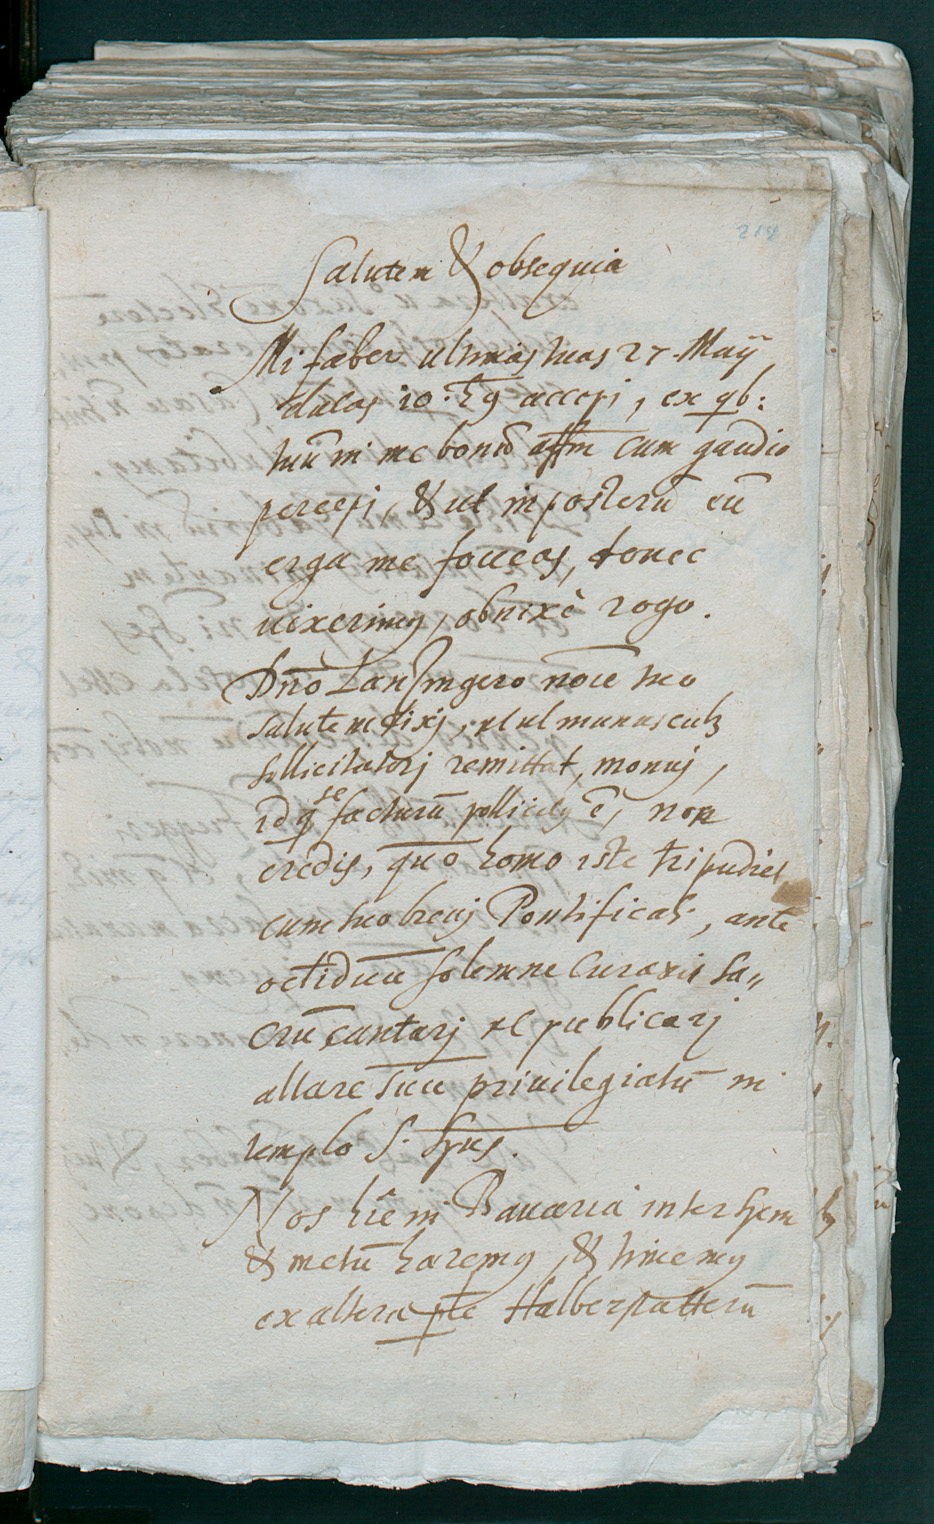 218
Salutem & obsequia
Mi faber ultimas tuas 27 Maij
datas 10. hꝰ accepi, ex qb:
tuū in me bonū affm cum gaudio
percepi, & ut inposterū eū
erga me foueas, donec
uixerimꝰ, obnixè rogo.
Dno Lansingero noīe tuo
salutem dixj, et ut munuscula
sollicitatorj remittat, monuj,
idq se facturū pollicitꝰ ē, non
credis, quo homo iste tripudiet
cum tuo breuj Pontificali, ante
octiduū solemne curauit sa„
crū cantarj et publicarj
altare suū priuilegiatū in
templo S. Spūs.
Nos hîc in Bauaria inter spem
& metū haremꝰ, & timemꝰ
ex altera pte Halberstatterū